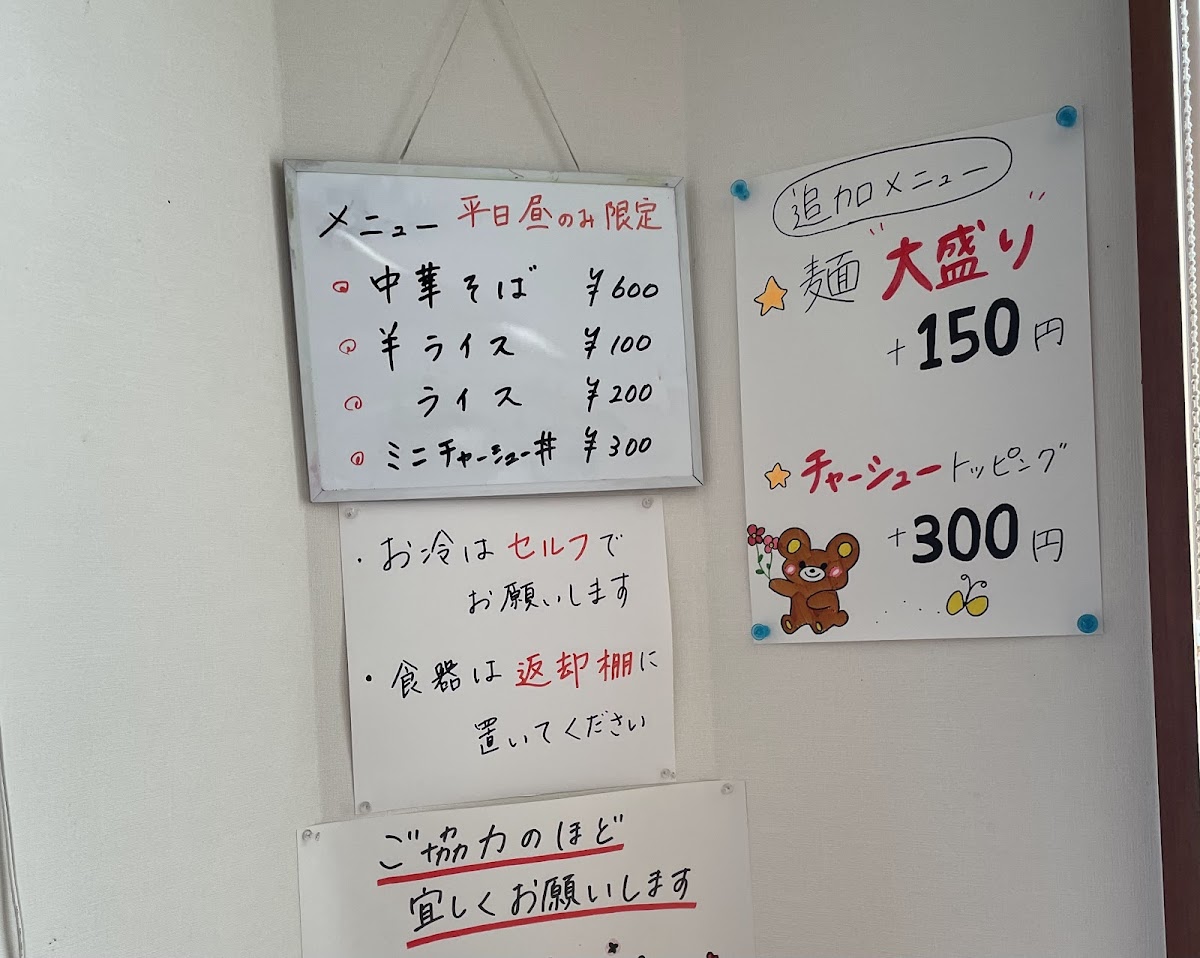 メニュー 平日昼のみ限定
中華そば ¥600
半ライス ¥100
ライス ¥200
ミニチャーシュー丼 ¥300
・お冷はセルフで
お願いします
・食器は返却棚に
置いてください
ご協力のほど
宜しくお願いします
追加メニュー
麺"大盛り"
+150円
チャーシュートッピング
+300円